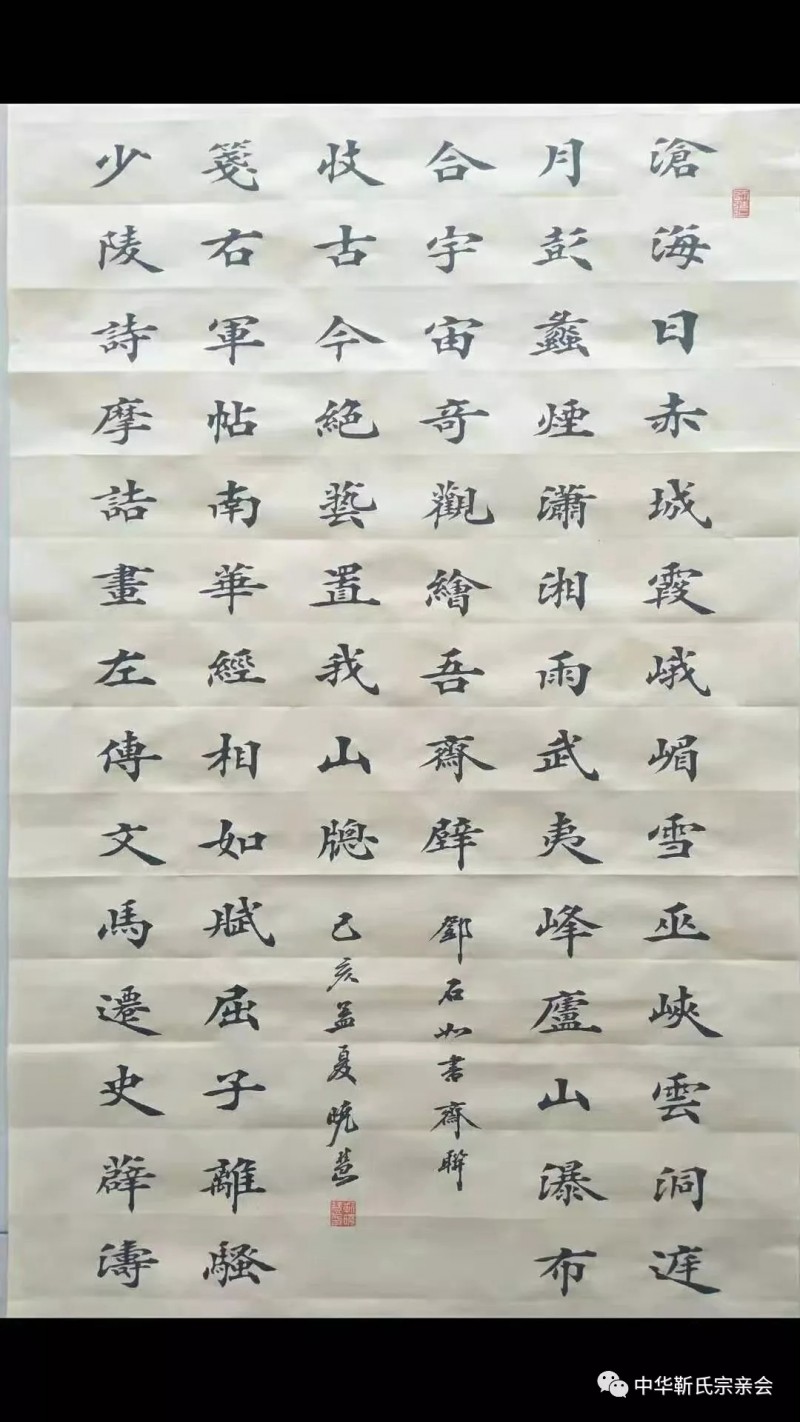 滄海日赤城霞峨嵋雪巫峽雲洞庭
月彭蠡煙瀟湘雨武夷峰廬山瀑布
合宇宙奇觀繪吾齋壁
鄧石如書齋聯
少陵詩摩詰畫左傳文馬遷史薛濤
箋右軍帖南華經相如賦屈子離騷
收古今絕藝置我山牕
己亥孟夏曉慧
中华靳氏宗亲会